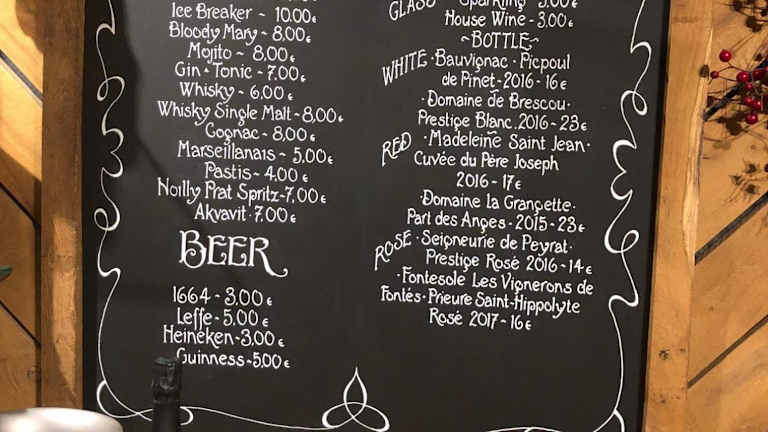 Ice Breaker ~ 10.00€
Bloody Mary ~ 8,00€
Mojito ~ 8,00€
Gin & Tonic - 7,00€
Whisky ~ 6,00€
Whisky Single Malt - 8,00€
Cognac ~ 8,00€
Marseillanais ~ 5,00€
Pastis ~ 4,00€
Noilly Prat Spritz - 7,00€
Akvavit · 7,00€
BEER
1664 - 3,00€
Leffe - 5,00€
Heineken - 3,00€
Guinness - 5,00€
GLASS
Sparkling 5.00€
House Wine - 3,00€
~BOTTLE~
WHITE · Bauvignac · Picpoul
de Pinet - 2016 - 16€
· Domaine de Brescou ·
Prestige Blanc . 2016 - 23€
RED · Madeleine Saint Jean ·
Cuvée du Père Joseph
2016 - 17€
· Domaine la Grangette ·
Part des Anges · 2015 - 23€
ROSÉ · Seigneurie de Peyrat ·
Prestige Rosé 2016 - 14€
· Fontesole Les Vignerons de
Fontés · Prieure Saint-Hippolyte
Rosé 2017 - 16€